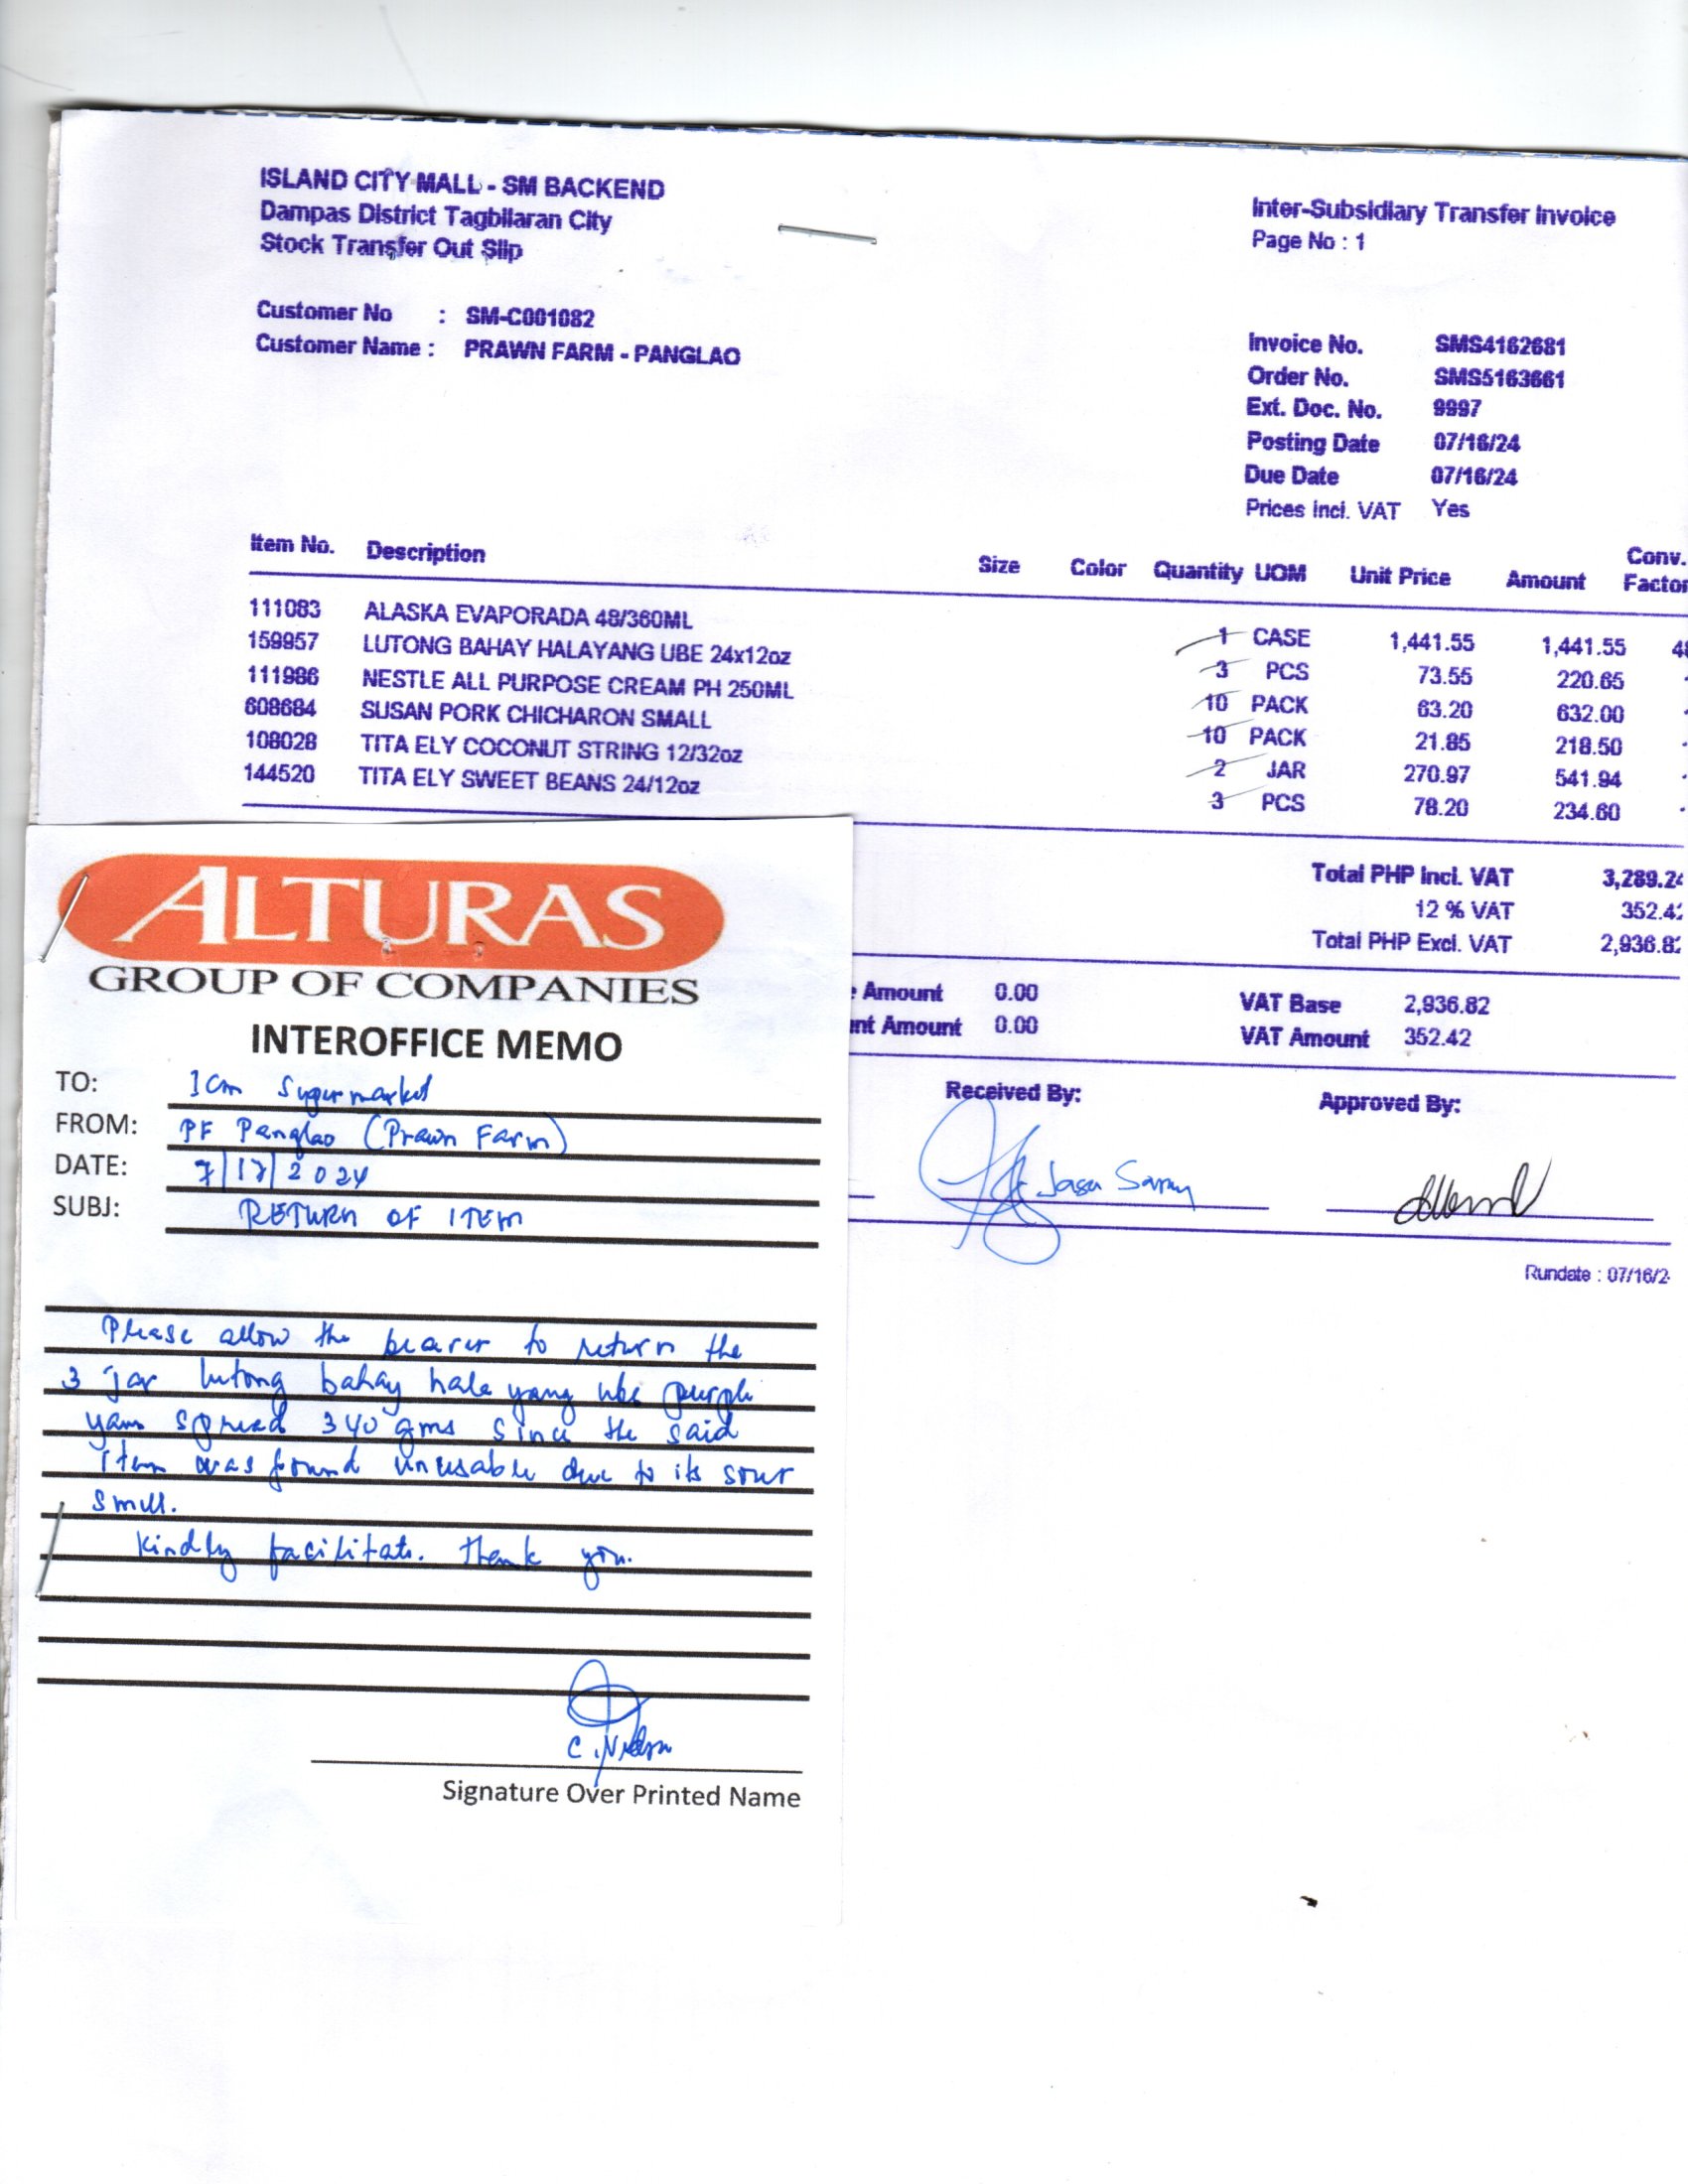 ISLAND CITY MALL - SM BACKEND
Dampas District Tagbilaran City
Stock Transfer Out Slip
Inter-Subsidiary Transfer Invoice
Page No : 1
Customer No : SM-C001082
Customer Name : PRAWN FARM - PANGLAO
Invoice No. SMS4162681
Order No. SMS5163661
Ext. Doc. No. 9997
Posting Date 07/16/24
Due Date 07/16/24
Prices incl. VAT Yes
Item No. Description Size Color Quantity UOM Unit Price Amount Conv. Factor
111083 ALASKA EVAPORADA 48/360ML 1 CASE 1,441.55 1,441.55
159957 LUTONG BAHAY HALAYANG UBE 24x12oz 3 PCS 73.55 220.65
111986 NESTLE ALL PURPOSE CREAM PH 250ML 10 PACK 63.20 632.00
608684 SUSAN PORK CHICHARON SMALL 10 PACK 21.85 218.50
108028 TITA ELY COCONUT STRING 12/32oz 2 JAR 270.97 541.94
144520 TITA ELY SWEET BEANS 24/12oz 3 PCS 78.20 234.60
Total PHP Incl. VAT 3,289.24
12 % VAT 352.42
Total PHP Excl. VAT 2,936.82
Amount 0.00 VAT Base 2,936.82
nt Amount 0.00 VAT Amount 352.42
Received By: Approved By:
Rundate : 07/16/2
ALTURAS
GROUP OF COMPANIES
INTEROFFICE MEMO
TO: ICM Supermarket
FROM: PF Panglao (Prawn Farm)
DATE: 7/17/2024
SUBJ: RETURN OF ITEM
Please allow the bearer to return the
3 jar lutong bahay hale yang ube purple
yam spread 340 gms since the said
item was found unusable due to its sour
smell.
Kindly facilitate. Thank you.
Signature Over Printed Name